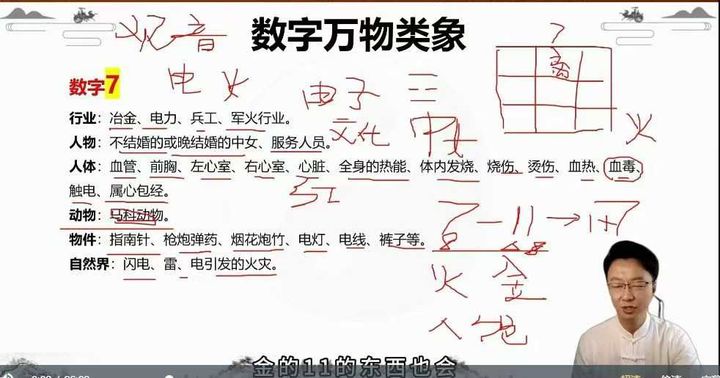 数字万物类象
观音
数字7
电 火
电子 三
7
离
火
行业：冶金、电力、兵工、军火行业。
文化 中女
人物：不结婚的或晚结婚的中女、服务人员。
人体：血管、前胸、左心室、右心室、心脏、全身的热能、体内发烧、烧伤、烫伤、血热、血毒、
触电、属心包经。
红
动物：马科动物。
7-11→1+7
物件：指南针、枪炮弹药、烟花炮竹、电灯、电线、裤子等。
火 金
自然界：闪电、雷、电引发的火灾。
金的11的东西也会